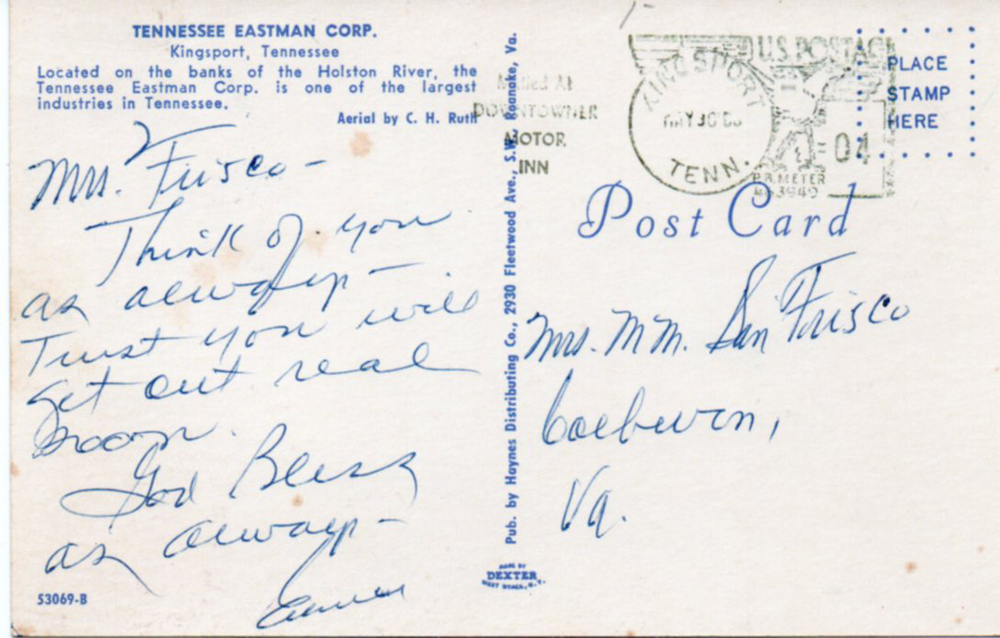 TENNESSEE EASTMAN CORP.
Kingsport, Tennessee
Located on the banks of the Holston River, the
Tennessee Eastman Corp. is one of the largest
industries in Tennessee.
Aerial by C. H. Ruth
Mrs. Frisco –
Think of you
as always –
Trust you will
get out real
soon.
God Bless
as always –
53069-B
Mailed At
DOWNTOWNER
MOTOR
INN
Pub. by Haynes Distributing Co., 2930 Fleetwood Ave., S.W. Roanoke, Va.
MADE BY
DEXTER
WEST NYACK, N.Y.
KINGSPORT
MAY 30
TENN.
U.S. POSTAGE
04
P.B. METER
PLACE
STAMP
HERE
Post Card
Mrs. M M. San Frisco
Coeburn,
Va.